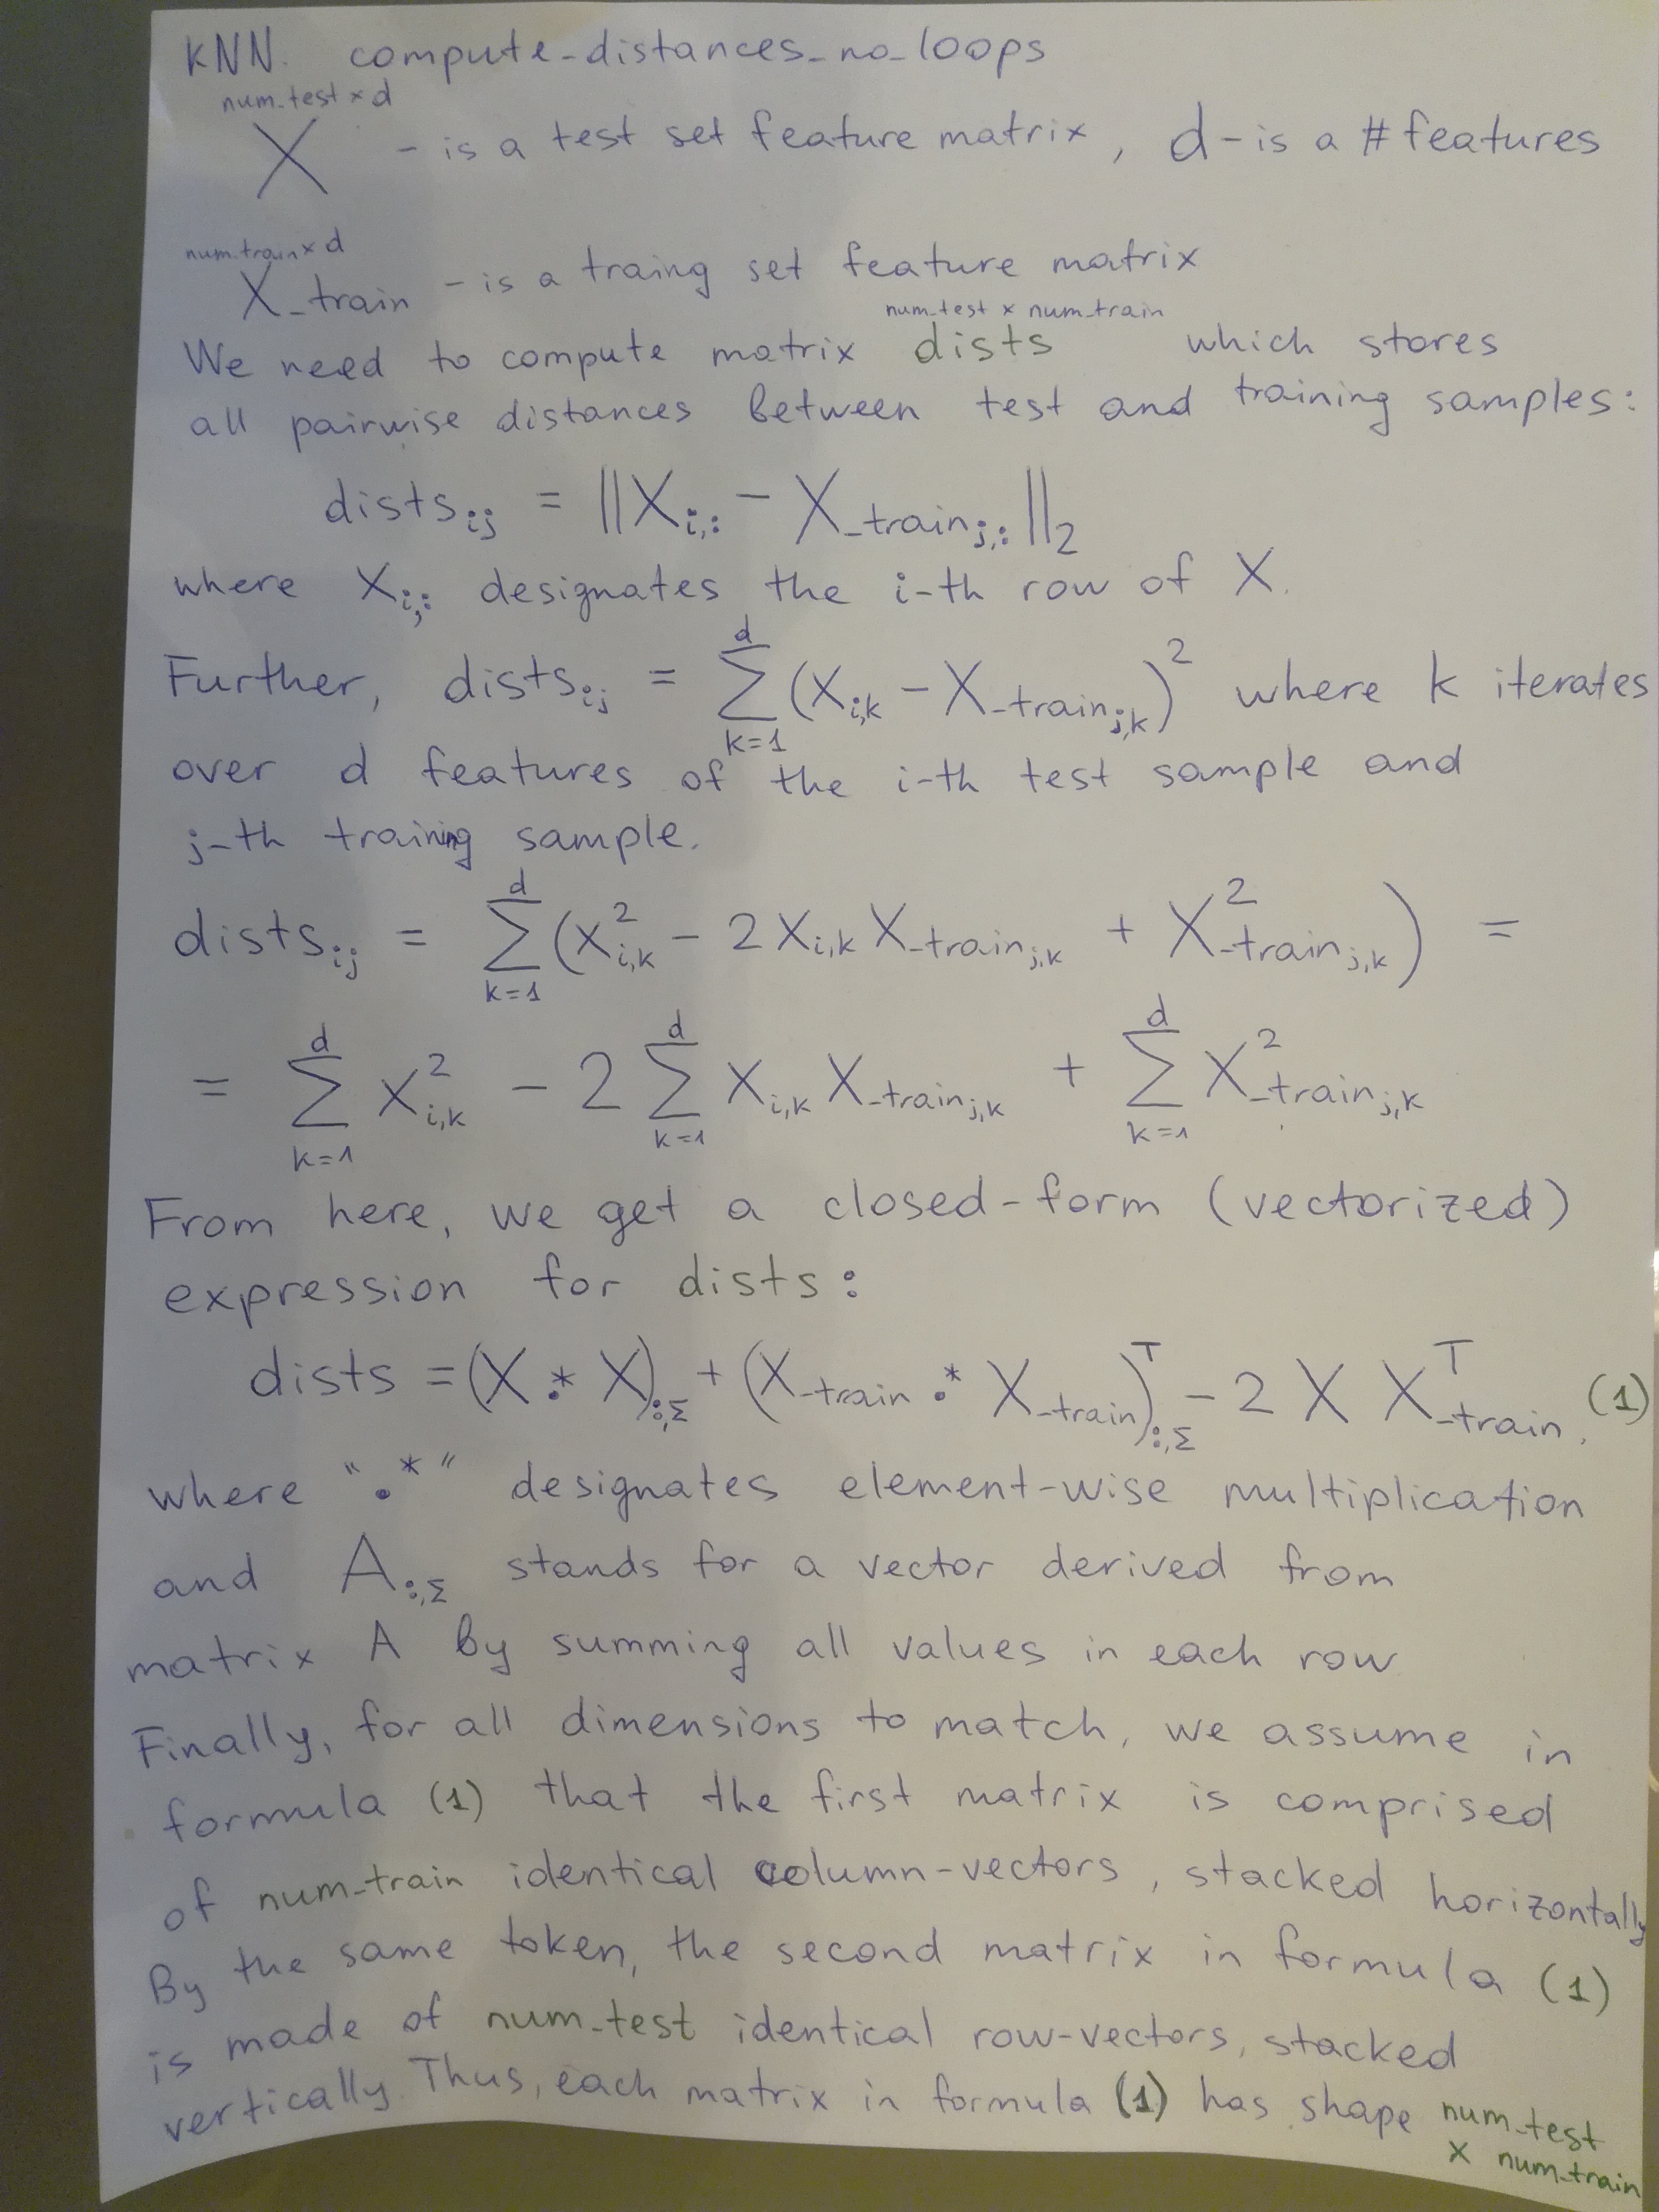 kNN. compute_distances_no_loops
num_test × d
X - is a test set feature matrix, d - is a # features
num_train × d
X_train - is a traing set feature matrix
num_test × num_train
We need to compute matrix dists which stores
all pairwise distances between test and training samples:
dists_ij = ||X_i,: - X_train_j,:||_2
where X_i,: designates the i-th row of X.
Further, dists_ij = Σ_{k=1}^{d} (X_i,k - X_train_j,k)^2 where k iterates
over d features of the i-th test sample and
j-th training sample.
dists_ij = Σ_{k=1}^{d} (X^2_i,k - 2 X_i,k X_train_j,k + X^2_train_j,k) =
= Σ_{k=1}^{d} X^2_i,k - 2 Σ_{k=1}^{d} X_i,k X_train_j,k + Σ_{k=1}^{d} X^2_train_j,k
From here, we get a closed-form (vectorized)
expression for dists:
dists = (X .* X)_:,Σ + (X_train .* X_train)^T_:,Σ - 2 X X^T_train, (1)
where ".*" designates element-wise multiplication
and A_:,Σ stands for a vector derived from
matrix A by summing all values in each row
Finally, for all dimensions to match, we assume in
formula (1) that the first matrix is comprised
of num_train identical column-vectors, stacked horizontally
By the same token, the second matrix in formula (1)
is made of num_test identical row-vectors, stacked
vertically. Thus, each matrix in formula (1) has shape num_test
× num_train